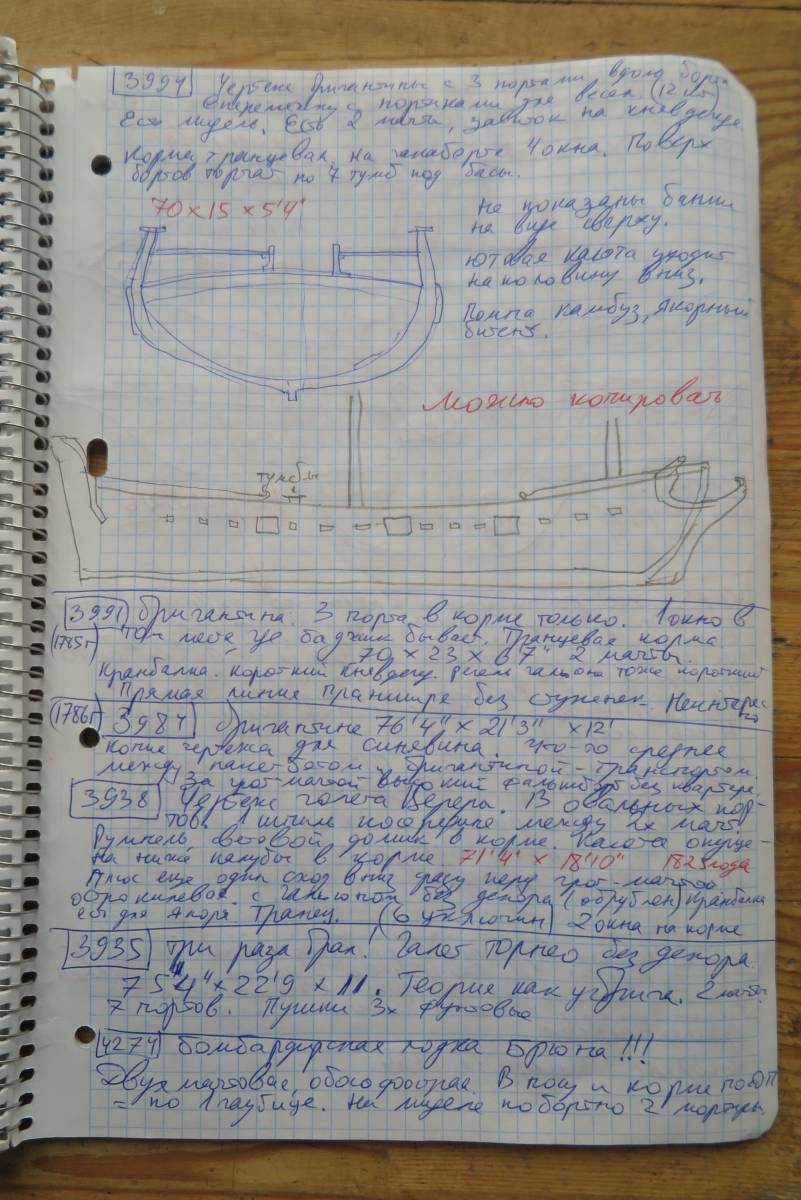 3994 Чертеж бригантины с 3 портами вдоль борта
вперемежку с портиками для весел. (12 шт)
Есть мидель. Есть 2 мачты, завиток на княвдигеде
Корма транцевая, на гакаборте 4 окна. Поверх
бортов торчат по 7 тумб под басы.
70 x 15 x 5'4"
не показаны банки
на виде сверху.
ютовая каюта уходит
на половину вниз.
Помпа камбуз, якорный
битенг.
Можно копировать
тумбы
3991 Бригантина. 3 порта в корме только. 1 окно в
(1785г) том месте где бывает. Транцевая корма
70 x 23 x 6'7" 2 мачты.
Кранбалка. Короткий княвдигед. гальюна тоже короткий
Прямая линия планшира без ступенек. Неинтересно
(1786г) 3984 Бригантине 76'4" x 21'3" x 12'
Копия чертежа для Синявина. Что-то среднее
между пакетботом и бригантиной-транспортом.
За грот-мачтой высокий фальшборт без квартердека
3938 Чертеж галета Церера. 13 овальных пор-
тов. 1 шпиль посередине между 2х мачт.
Румпель, световой домик в корме. Каюта опуще-
на ниже палубы в корме 71'4" x 18'10" 1825 года
Плюс еще один сход вниз сразу перед грот-мачтой
остро килевая. с гальюном без декора (обрублен) кранбалка
есть для якоря Транец. (6 уключин) 2 окна на корме
3935 три раза брал! Галет Торнео без декора.
75'4" x 22'9 x 11. Теория как у 2 мачты
7 портов. Пушки 3х фунтовые
4274 бомбардирская лодка Брюна!!!
Двухмачтовая, обоюдоострая. В носу и корме
= по 1 гаубице. На миделе побортно 2 мортиры.